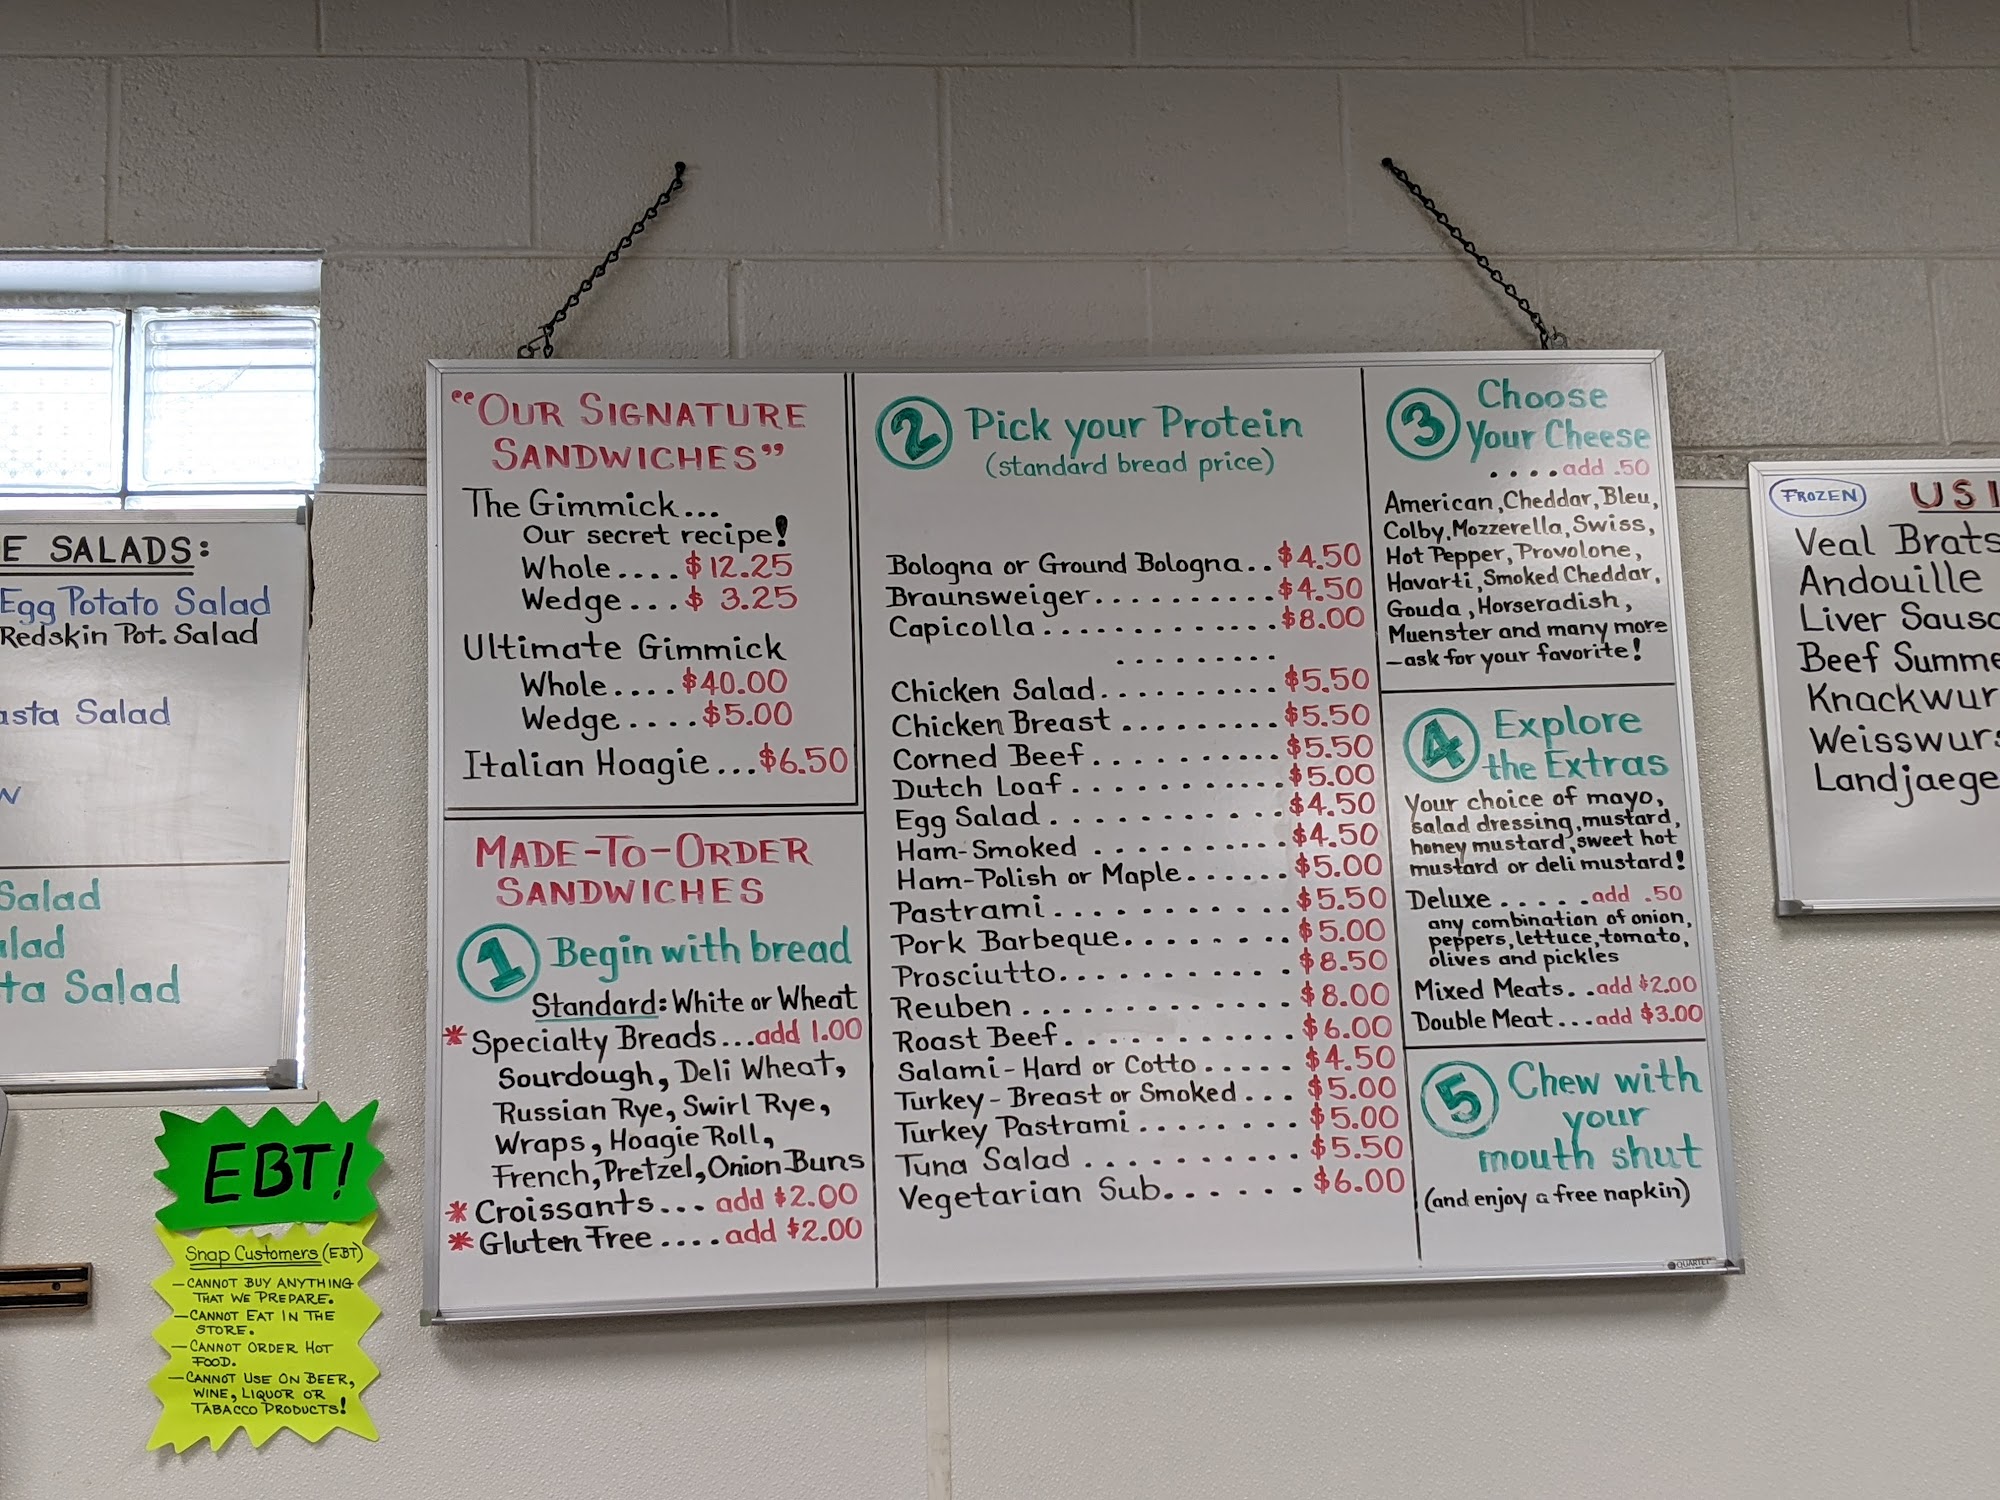 E SALADS:
Egg Potato Salad
Redskin Pot. Salad
asta Salad
Salad
alad
ta Salad
EBT!
Snap Customers (EBT)
– CANNOT BUY ANYTHING
THAT WE PREPARE.
– CANNOT EAT IN THE
STORE.
– CANNOT ORDER HOT
FOOD.
– CANNOT USE ON BEER,
WINE, LIQUOR OR
TABACCO PRODUCTS!
"OUR SIGNATURE
SANDWICHES"
The Gimmick...
Our secret recipe!
Whole....$12.25
Wedge...$ 3.25
Ultimate Gimmick
Whole....$40.00
Wedge....$5.00
Italian Hoagie...$6.50
MADE-TO-ORDER
SANDWICHES
1 Begin with bread
Standard: White or Wheat
* Specialty Breads...add 1.00
Sourdough, Deli Wheat,
Russian Rye, Swirl Rye,
Wraps, Hoagie Roll,
French, Pretzel, Onion Buns
* Croissants... add $2.00
* Gluten Free....add $2.00
2 Pick your Protein
(standard bread price)
Bologna or Ground Bologna..$4.50
Braunsweiger..........$4.50
Capicolla............$8.00
.........
Chicken Salad..........$5.50
Chicken Breast.........$5.50
Corned Beef..........$5.50
Dutch Loaf...........$5.00
Egg Salad............$4.50
Ham-Smoked..........$4.50
Ham-Polish or Maple......$5.00
Pastrami............$5.50
Pork Barbeque........$5.00
Prosciutto...........$8.50
Reuben.............$8.00
Roast Beef...........$6.00
Salami-Hard or Cotto.....$4.50
Turkey-Breast or Smoked...$5.00
Turkey Pastrami........$5.00
Tuna Salad..........$5.50
Vegetarian Sub.......$6.00
3 Choose
Your Cheese
....add .50
American, Cheddar, Bleu,
Colby, Mozzerella, Swiss,
Hot Pepper, Provolone,
Havarti, Smoked Cheddar,
Gouda, Horseradish,
Muenster and many more
–ask for your favorite!
4 Explore
the Extras
Your choice of mayo,
salad dressing, mustard,
honey mustard, sweet hot
mustard or deli mustard!
Deluxe.....add .50
any combination of onion,
peppers, lettuce, tomato,
olives and pickles
Mixed Meats..add $2.00
Double Meat...add $3.00
5 Chew with
your
mouth shut
(and enjoy a free napkin)
QUARTET
FROZEN
Veal Brats
Andouille
Liver Sausa
Beef Summe
Knackwur
Weisswurs
Landjaege